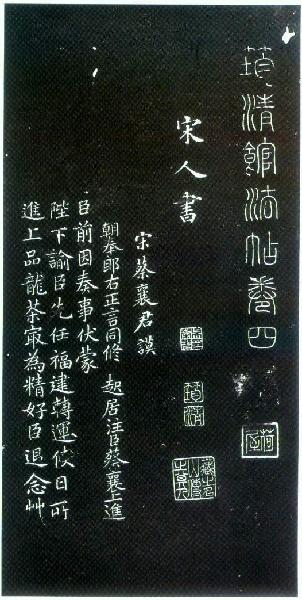 筠清館法帖卷四
宋人書
宋蔡襄君謨
朝奉郎右正言同修 起居注臣蔡襄上進
臣前因奏事伏蒙
陛下諭臣先任福建轉運使日所
進上品龍茶寂為精好臣退念艸